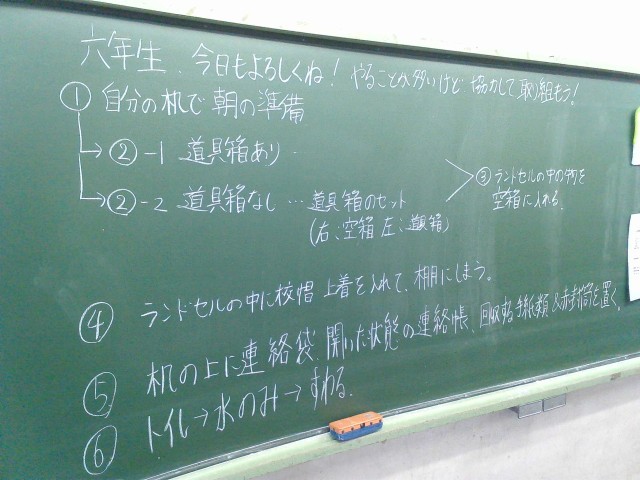 六年生、今日もよろしくね！ やることか多いけど 協力して取り組もう！
① 自分の机で朝の準備
→ ②-1 道具箱あり
→ ②-2 道具箱なし … 道具箱のセット
(右：空箱 左：道具箱)
③ ランドセルの中の物を
空箱に入れる。
④ ランドセルの中に校帽 上着を入れて、棚にしまう。
⑤ 机の上に連絡袋、開いた状態の連絡帳、回収する手紙類&赤封筒を置く。
⑥ トイレ→水のみ→すわる。